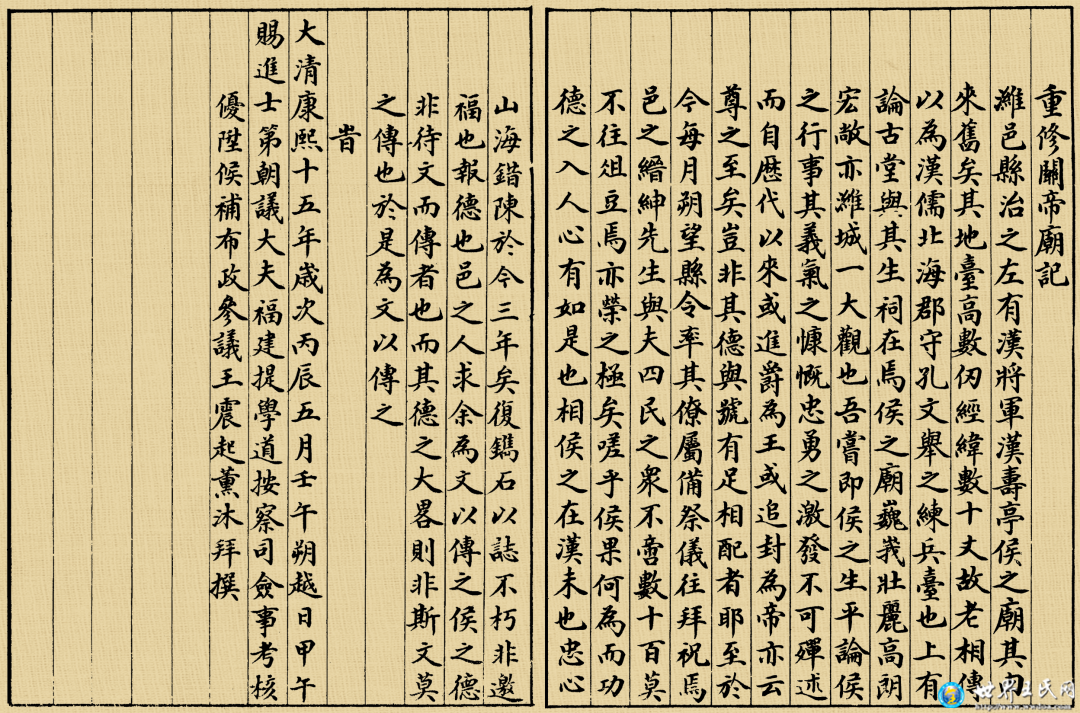 重修關帝廟記
濰邑縣治之左有漢將軍漢壽亭侯之廟其
來舊矣其地臺高數仞經緯數十丈故老相傳
以為漢儒北海郡守孔文舉之練兵臺也上有
論古堂與其生祠在焉侯之廟巍峩壯麗高朗
宏敞亦濰城一大觀也吾嘗即侯之生平論侯
之行事其義氣之慷慨忠勇之激發不可殫述
而自歷代以來或進爵為王或追封為帝亦云
尊之至矣豈非其德與號有足相配者耶至於
今每月朔望縣令率其僚屬備祭儀往拜祝焉
邑之縉紳先生與夫四民之眾不啻數十百莫
不往俎豆焉亦榮之極矣嗟乎侯果何為而功
德之入人心有如是也相侯之在漢末也忠心
山海錯陳於今三年矣復鐫石以誌不朽非邀
福也報德也邑之人求余為文以傳之侯之德
非待文而傳者也而其德之大畧則非斯文莫
之傳也於是為文以傳之
旹
大清康熙十五年歲次丙辰五月壬午朔越日甲午
賜進士第朝議大夫福建提學道按察司僉事考核
優陞候補布政參議王震起薰沐拜撰
世界王氏网